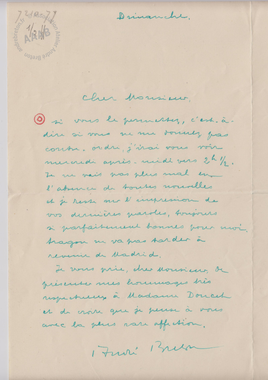 Dimanche.
Cher Monsieur,
si vous le permettez, c'est-à-
dire si vous ne me donnez pas
contre-ordre, j'irai vous voir
mercredi après-midi vers 2h 1/2.
Je ne vais pas plus mal en
l'absence de toutes nouvelles
et je reste sur l'impression de
vos dernières paroles, toujours
si parfaitement bonnes pour moi.
Aragon ne va pas tarder à
revenir de Madrid.
Je vous prie, cher Monsieur, de
présenter mes hommages très
respectueux à Madame Doucet
et de noter que je pense à vous
avec la plus rare affection.
André Breton